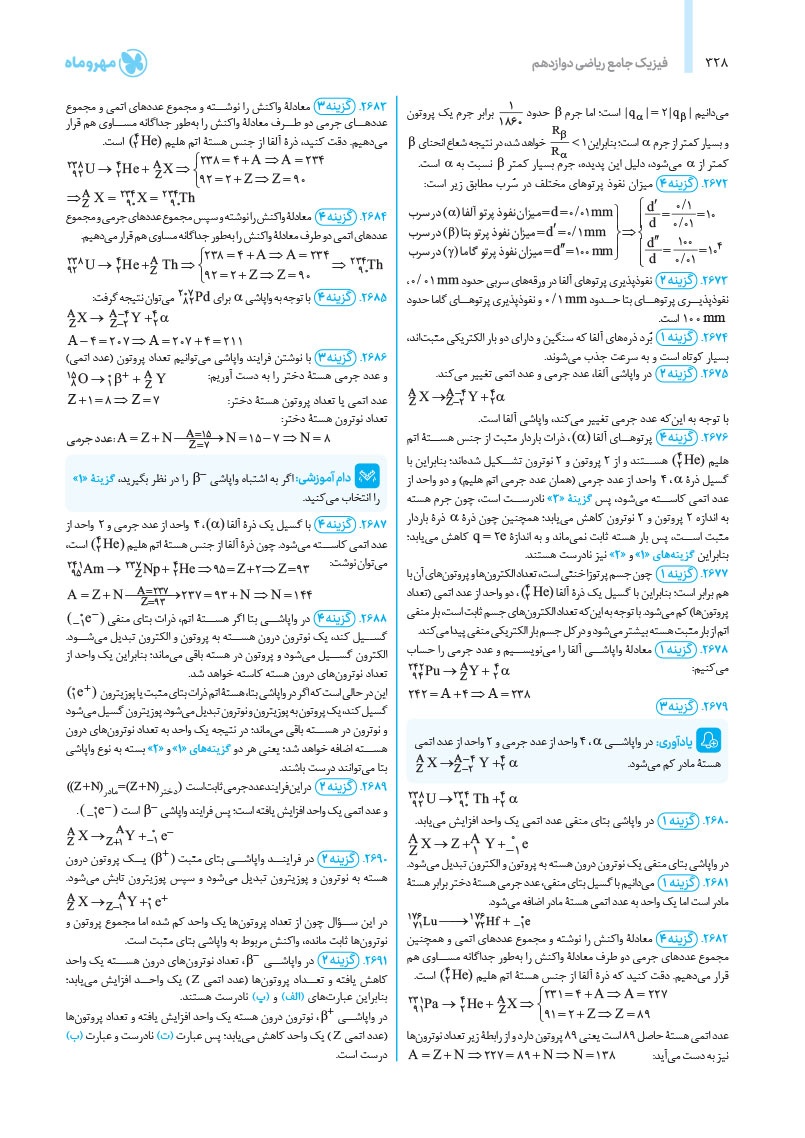 ۳۲۸
فیزیک جامع ریاضی دوازدهم
مهروماه
می‌دانیم |qα| = ۲|qβ| است؛ اما جرم β حدود ۱/۱۸۶۰ برابر جرم یک پروتون
و بسیار کمتر از جرم α است؛ بنابراین Rβ/Rα < ۱ خواهد شد، در نتیجه شعاع انحنای β
کمتر از α می‌شود، دلیل این پدیده، جرم بسیار کمتر β نسبت به α است.
۲۶۷۲. گزینه ۴ میزان نفوذ پرتوهای مختلف در سُرب مطابق زیر است:
میزان نفوذ پرتو آلفا (α) در سرب = d = ۰/۰۱ mm
میزان نفوذ پرتو بتا (β) در سرب = d′ = ۰/۱ mm
میزان نفوذ پرتو گاما (γ) در سرب = d″ = ۱۰۰ mm
⇒ { d′/d = ۰/۱ / ۰/۰۱ = ۱۰
d″/d = ۱۰۰ / ۰/۰۱ = ۱۰⁴
۲۶۷۳. گزینه ۲ نفوذپذیری پرتوهای آلفا در ورقه‌های سربی حدود ۰/۰۱ mm،
نفوذپذیــری پرتوهــای بتا حــدود ۰/۱ mm و نفوذپذیری پرتوهــای گاما حدود
۱۰۰ mm است.
۲۶۷۴. گزینه ۱ بُرد ذره‌های آلفا که سنگین و دارای دو بار الکتریکی مثبت‌اند،
بسیار کوتاه است و به سرعت جذب می‌شوند.
۲۶۷۵. گزینه ۲ در واپاشی آلفا، عدد جرمی و عدد اتمی تغییر می‌کند.
ᴬ_Z X → ᴬ⁻⁴_Z₋₂ Y + ⁴₂α
با توجه به این‌که عدد جرمی تغییر می‌کند، واپاشی آلفا است.
۲۶۷۶. گزینه ۴ پرتوهــای آلفا (α)، ذرات باردار مثبت از جنس هســتهٔ اتم
هلیم (⁴₂He) هســتند و از ۲ پروتون و ۲ نوترون تشــکیل شده‌اند؛ بنابراین با
گسیل ذرهٔ α، ۴ واحد از عدد جرمی (همان عدد جرمی اتم هلیم) و دو واحد از
عدد اتمی کاســته می‌شود، پس گزینهٔ «۳» نادرســت است، چون جرم هسته
به اندازه ۲ پروتون و ۲ نوترون کاهش می‌یابد؛ همچنین چون ذرهٔ α ذرهٔ باردار
مثبت اســت، پس بار هسته ثابت نمی‌ماند و به اندازهٔ q = ۲e کاهش می‌یابد؛
بنابراین گزینه‌های «۱» و «۲» نیز نادرست هستند.
۲۶۷۷. گزینه ۱ چون جسم پرتوزا خنثی است، تعداد الکترون‌ها و پروتون‌های آن با
هم برابر است؛ بنابراین با گسیل یک ذرهٔ آلفا (⁴₂He)، دو واحد از عدد اتمی (تعداد
پروتون‌ها) کم می‌شود. با توجه به این که تعداد الکترون‌های جسم ثابت است، بار منفی
اتم از بار مثبت هسته بیشتر می‌شود و در کل جسم بار الکتریکی منفی پیدا می‌کند.
۲۶۷۸. گزینه ۱ معادلهٔ واپاشــی آلفا را می‌نویســیم و عدد جرمی را حساب
می‌کنیم: ²⁴²₉₄Pu → ᴬ_Z Y + ⁴₂α
۲۴۲ = A + ۴ ⇒ A = ۲۳۸
۲۶۷۹. گزینه ۳
یادآوری: در واپاشــی α، ۴ واحد از عدد جرمی و ۲ واحد از عدد اتمی
هستهٔ مادر کم می‌شود. ᴬ_Z X → ᴬ⁻⁴_Z₋₂ Y + ⁴₂α
²³⁸₉₂U → ²³⁴₉₀Th + ⁴₂α
۲۶۸۰. گزینه ۱ در واپاشی بتای منفی عدد اتمی یک واحد افزایش می‌یابد.
ᴬ_Z X → Z + ᴬ₁ Y + ⁰₋₁e
در واپاشی بتای منفی یک نوترون درون هسته به پروتون و الکترون تبدیل می‌شود.
۲۶۸۱. گزینه ۱ می‌دانیم با گسیل بتای منفی، عدد جرمی هستهٔ دختر برابر هستهٔ
مادر است اما یک واحد به عدد اتمی هستهٔ مادر اضافه می‌شود.
¹⁷⁶₇₁Lu → ¹⁷⁶₇₂Hf + ⁰₋₁e
۲۶۸۲. گزینه ۴ معادلهٔ واکنش را نوشته و مجموع عددهای اتمی و همچنین
مجموع عددهای جرمی دو طرف معادلهٔ واکنش را به‌طور جداگانه مســاوی هم
قرار می‌دهیم. دقت کنید که ذرهٔ آلفا از جنس هستهٔ اتم هلیم (⁴₂He) است.
²³¹₉₁Pa → ⁴₂He + ᴬ_Z X ⇒ { ۲۳۱ = ۴ + A ⇒ A = ۲۲۷
۹۱ = ۲ + Z ⇒ Z = ۸۹
عدد اتمی هستهٔ حاصل ۸۹ است یعنی ۸۹ پروتون دارد و از رابطهٔ زیر تعداد نوترون‌ها
نیز به دست می‌آید: A = Z + N ⇒ ۲۲۷ = ۸۹ + N ⇒ N = ۱۳۸
۲۶۸۳. گزینه ۳ معادلهٔ واکنش را نوشــته و مجموع عددهای اتمی و مجموع
عددهــای جرمی دو طــرف معادلهٔ واکنش را به‌طور جداگانه مســاوی هم قرار
می‌دهیم. دقت کنید، ذرهٔ آلفا از جنس هستهٔ اتم هلیم (⁴₂He) است.
²³⁸₉₂U → ⁴₂He + ᴬ_Z X ⇒ { ۲۳۸ = ۴ + A ⇒ A = ۲۳۴
۹۲ = ۲ + Z ⇒ Z = ۹۰
⇒ ᴬ_Z X = ²³⁴₉₀X = ²³⁴₉₀Th
۲۶۸۴. گزینه ۴ معادلهٔ واکنش را نوشته و سپس مجموع عددهای جرمی و مجموع
عددهای اتمی دو طرف معادلهٔ واکنش را به‌طور جداگانه مساوی هم قرار می‌دهیم.
²³⁸₉₂U → ⁴₂He + ᴬ_Z Th ⇒ { ۲۳۸ = ۴ + A ⇒ A = ۲۳۴
۹۲ = ۲ + Z ⇒ Z = ۹۰ ⇒ ²³⁴₉₀Th
۲۶۸۵. گزینه ۴ با توجه به واپاشی α برای ²⁰⁷₈₂Pd می‌توان نتیجه گرفت:
ᴬ_Z X → ᴬ⁻⁴_Z₋₂ Y + ⁴₂α
A − ۴ = ۲۰۷ ⇒ A = ۲۰۷ + ۴ = ۲۱۱
۲۶۸۶. گزینه ۳ با نوشتن فرایند واپاشی می‌توانیم تعداد پروتون (عدد اتمی)
و عدد جرمی هستهٔ دختر را به دست آوریم: ¹⁵₈O → ⁰₁β⁺ + ᴬ_Z Y
عدد اتمی یا تعداد پروتون هستهٔ دختر: Z + ۱ = ۸ ⇒ Z = ۷
تعداد نوترون هستهٔ دختر:
عدد جرمی: A = Z + N —(A=۱۵, Z=۷)→ N = ۱۵ − ۷ ⇒ N = ۸
دام آموزشی: اگر به اشتباه واپاشی β⁻ را در نظر بگیرید، گزینهٔ «۱»
را انتخاب می‌کنید.
۲۶۸۷. گزینه ۴ با گسیل یک ذرهٔ آلفا (α)، ۴ واحد از عدد جرمی و ۲ واحد از
عدد اتمی کاســته می‌شود. چون ذرهٔ آلفا از جنس هستهٔ اتم هلیم (⁴₂He) است،
می‌توان نوشت: ²⁴¹₉₅Am → ²³⁷_Z Np + ⁴₂He ⇒ ۹۵ = Z + ۲ ⇒ Z = ۹۳
A = Z + N —(A=۲۳۷, Z=۹۳)→ ۲۳۷ = ۹۳ + N ⇒ N = ۱۴۴
۲۶۸۸. گزینه ۴ در واپاشــی بتا اگر هســتهٔ اتم، ذرات بتای منفی (⁰₋₁e⁻)
گســیل کند، یک نوترون درون هســته به پروتون و الکترون تبدیل می‌شــود.
الکترون گســیل می‌شود و پروتون در هسته باقی می‌ماند؛ بنابراین یک واحد از
تعداد نوترون‌های درون هسته کاسته خواهد شد.
این در حالی است که اگر در واپاشی بتا، هستهٔ اتم ذرات بتای مثبت یا پوزیترون (⁰₁e⁺)
گسیل کند، یک پروتون به پوزیترون و نوترون تبدیل می‌شود. پوزیترون گسیل می‌شود
و نوترون در هســته باقی می‌ماند؛ در نتیجه یک واحد به تعداد نوترون‌های درون
هســته اضافه خواهد شد؛ یعنی هر دو گزینه‌های «۱» و «۲» بسته به نوع واپاشی
بتا می‌توانند درست باشند.
۲۶۸۹. گزینه ۲ در این فرایند عدد جرمی ثابت است ((Z+N)مادر = (Z+N)دختر)
و عدد اتمی یک واحد افزایش یافته است؛ پس فرایند واپاشی β⁻ است (⁰₋₁e⁻).
ᴬ_Z X → ᴬ_Z₊₁ Y + ⁰₋₁e⁻
۲۶۹۰. گزینه ۲ در فراینــد واپاشــی بتای مثبت (β⁺) یــک پروتون درون
هسته به نوترون و پوزیترون تبدیل می‌شود و سپس پوزیترون تابش می‌شود.
ᴬ_Z X → ᴬ_Z₋₁ Y + ⁰₁e⁺
در این ســؤال چون از تعداد پروتون‌ها یک واحد کم شده اما مجموع پروتون و
نوترون‌ها ثابت مانده، واکنش مربوط به واپاشی بتای مثبت است.
۲۶۹۱. گزینه ۲ در واپاشــی β⁻، تعداد نوترون‌های درون هســته یک واحد
کاهش یافته و تعــداد پروتون‌ها (عدد اتمی Z) یک واحــد افزایش می‌یابد؛
بنابراین عبارت‌های (الف) و (پ) نادرست هستند.
در واپاشــی β⁺، نوترون درون هسته یک واحد افزایش یافته و تعداد پروتون‌ها
(عدد اتمی Z) یک واحد کاهش می‌یابد؛ پس عبارت (ت) نادرست و عبارت (ب)
درست است.